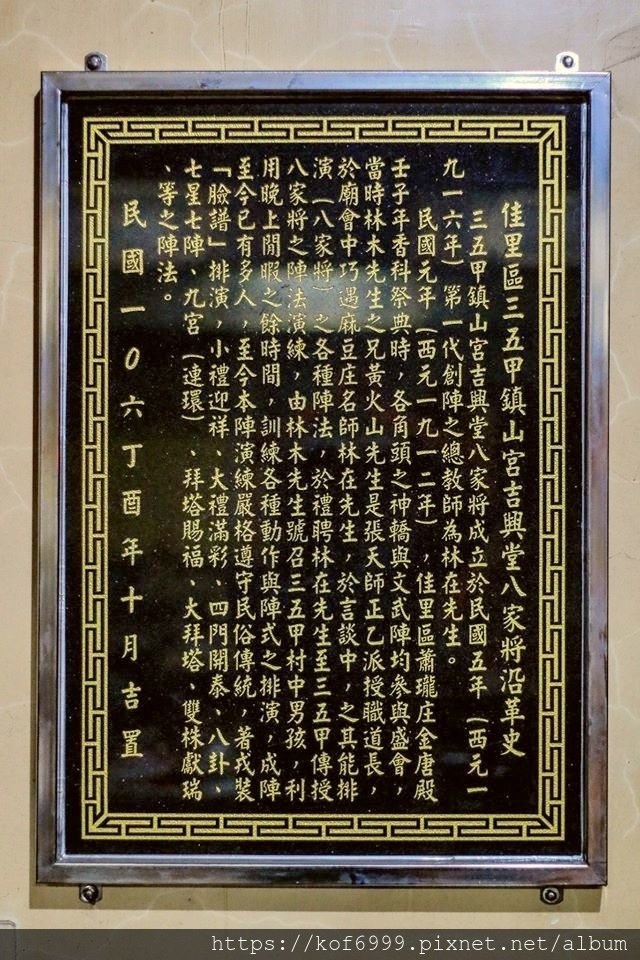 佳里區三五甲鎮山宮吉興堂八家將沿革史
三五甲鎮山宮吉興堂八家將成立於民國五年（西元一
九一六年）第一代創陣之總教師為林在先生。
民國元年（西元一九一二年），佳里區蕭瓏庄金唐殿
壬子年香科祭典時，各角頭之神轎與文武陣均參與盛會，
當時林木先生之兄黃火山先生是張天師正乙派授職道長，
於廟會中巧遇麻豆庄名師林在先生，於言談中，之其能排
演（八家將）之各種陣法，於禮聘林在先生至三五甲傳授
八家將之陣法演練，由林木先生號召三五甲村中男孩，利
用晚上閒暇之餘時間，訓練各種動作與陣式之排演，成陣
至今已有多人，至今本陣演練嚴格遵守民俗傳統，著戎裝
「臉譜」排演，小禮迎祥、大禮滿彩、四門開泰、八卦、
七星七陣、九宮（連環）、拜塔賜福、大拜塔、雙株獻瑞
、等之陣法。
民國一０六丁酉年十月吉置
https://kof6999.pixnet.net/album